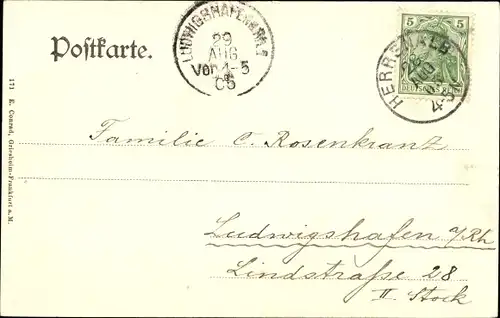 Postkarte.
LUDWIGSHAFEN
29
AUG
Vor 4-5
05
5 5
DEUTSCHES REICH
HERRENALB
AUG
4-5
171 E. Conrad, Griesheim-Frankfurt a.M.
Familie C. Rosenkranz
Ludwigshafen a/Rh
Lindstraße 28
II Stock